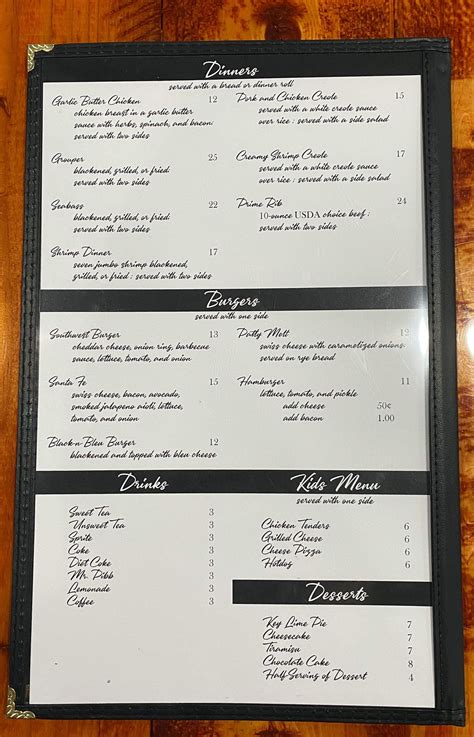 Dinners
served with a bread or dinner roll
Garlic Butter Chicken 12
chicken breast in a garlic butter
sauce with herbs, spinach, and bacon:
served with two sides
Grouper 25
blackened, grilled, or fried:
served with two sides
Seabass 22
blackened, grilled, or fried:
served with two sides
Shrimp Dinner 17
seven jumbo shrimp blackened,
grilled, or fried : served with two sides
Pork and Chicken Creole 15
served with a white creole sauce
over rice : served with a side salad
Creamy Shrimp Creole 17
served with a white creole sauce
over rice : served with a side salad
Prime Rib 24
10-ounce USDA choice beef :
served with two sides
Burgers
served with one side
Southwest Burger 13
cheddar cheese, onion ring, barbecue
sauce, lettuce, tomato, and onion
Santa Fe 15
swiss cheese, bacon, avocado,
smoked jalapeno aioli, lettuce,
tomato, and onion
Black-n-Bleu Burger 12
blackened and topped with bleu cheese
Patty Melt 12
swiss cheese with caramelized onions
served on rye bread
Hamburger 11
lettuce, tomato, and pickle
add cheese 50¢
add bacon 1.00
Drinks
Sweet Tea 3
Unsweet Tea 3
Sprite 3
Coke 3
Diet Coke 3
Mr. Pibb 3
Lemonade 3
Coffee 3
Kids Menu
served with one side
Chicken Tenders 6
Grilled Cheese 6
Cheese Pizza 6
Hotdog 6
Desserts
Key Lime Pie 7
Cheesecake 7
Tiramisu 7
Chocolate Cake 8
Half Serving of Dessert 4